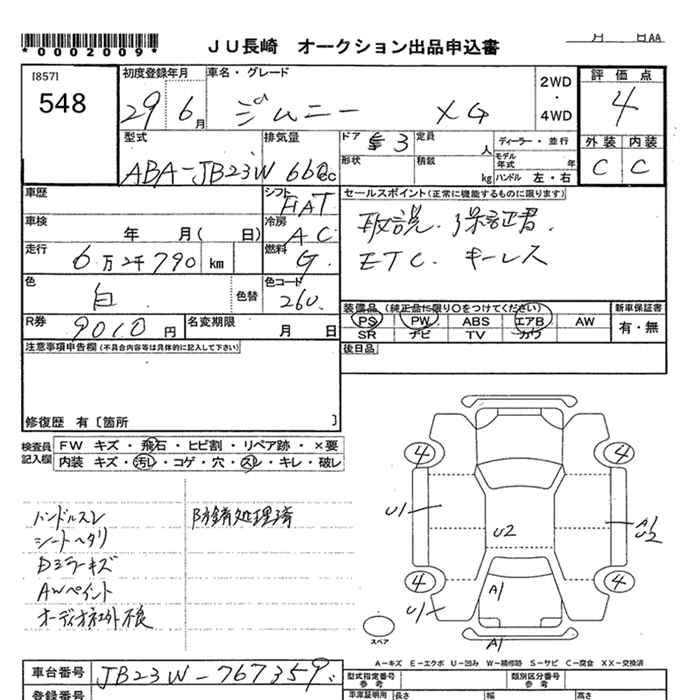 *0002009*
JU長崎 オークション出品申込書
月 日AA
[857]
548
初度登録年月
29 6月
車名・グレード
ジムニー XG
2WD
・
4WD
評価点
4
外装 内装
C C
型式
ABA-JB23W
排気量
660cc
ドア 3
形状
定員 人
積載 kg
ディーラー・並行
モデル年式 年
ハンドル 左・右
車歴
シフト FAT
車検 年 月( 日)
冷房 AC
走行 6万2千790 km
燃料 G
色 白 色替
色コード 26U
R券 9010円
名変期限 月 日
セールスポイント(正常に機能するものに限ります)
取説. 保証書.
ETC. キーレス
装備品(純正品に限り○をつけてください)
PS PW ABS エアB AW
SR ナビ TV カワ
新車保証書
有・無
後日品
注意事項申告欄(不具合内容等は具体的に記入して下さい)
修復歴 有〔箇所 〕
検査員記入欄
FW キズ・飛石・ヒビ割・リペア跡・×要
内装 キズ・汚レ・コゲ・穴・スレ・キレ・破レ
ハンドルスレ
シートヘタリ
Dミラーキズ
AWペイント
オーディオネ社外不良
防錆処理済
4 4
U1
U2
A1
U2
4 4
U1
A1
A1
スペア
A-キズ E-エクボ U-凹み W-補修跡 S-サビ C-腐食 XX-交換済
車台番号 JB23W-767359
型式指定番号 参考
類別区分番号 参考
登録番号
車庫証明用 長さ 幅 高さ